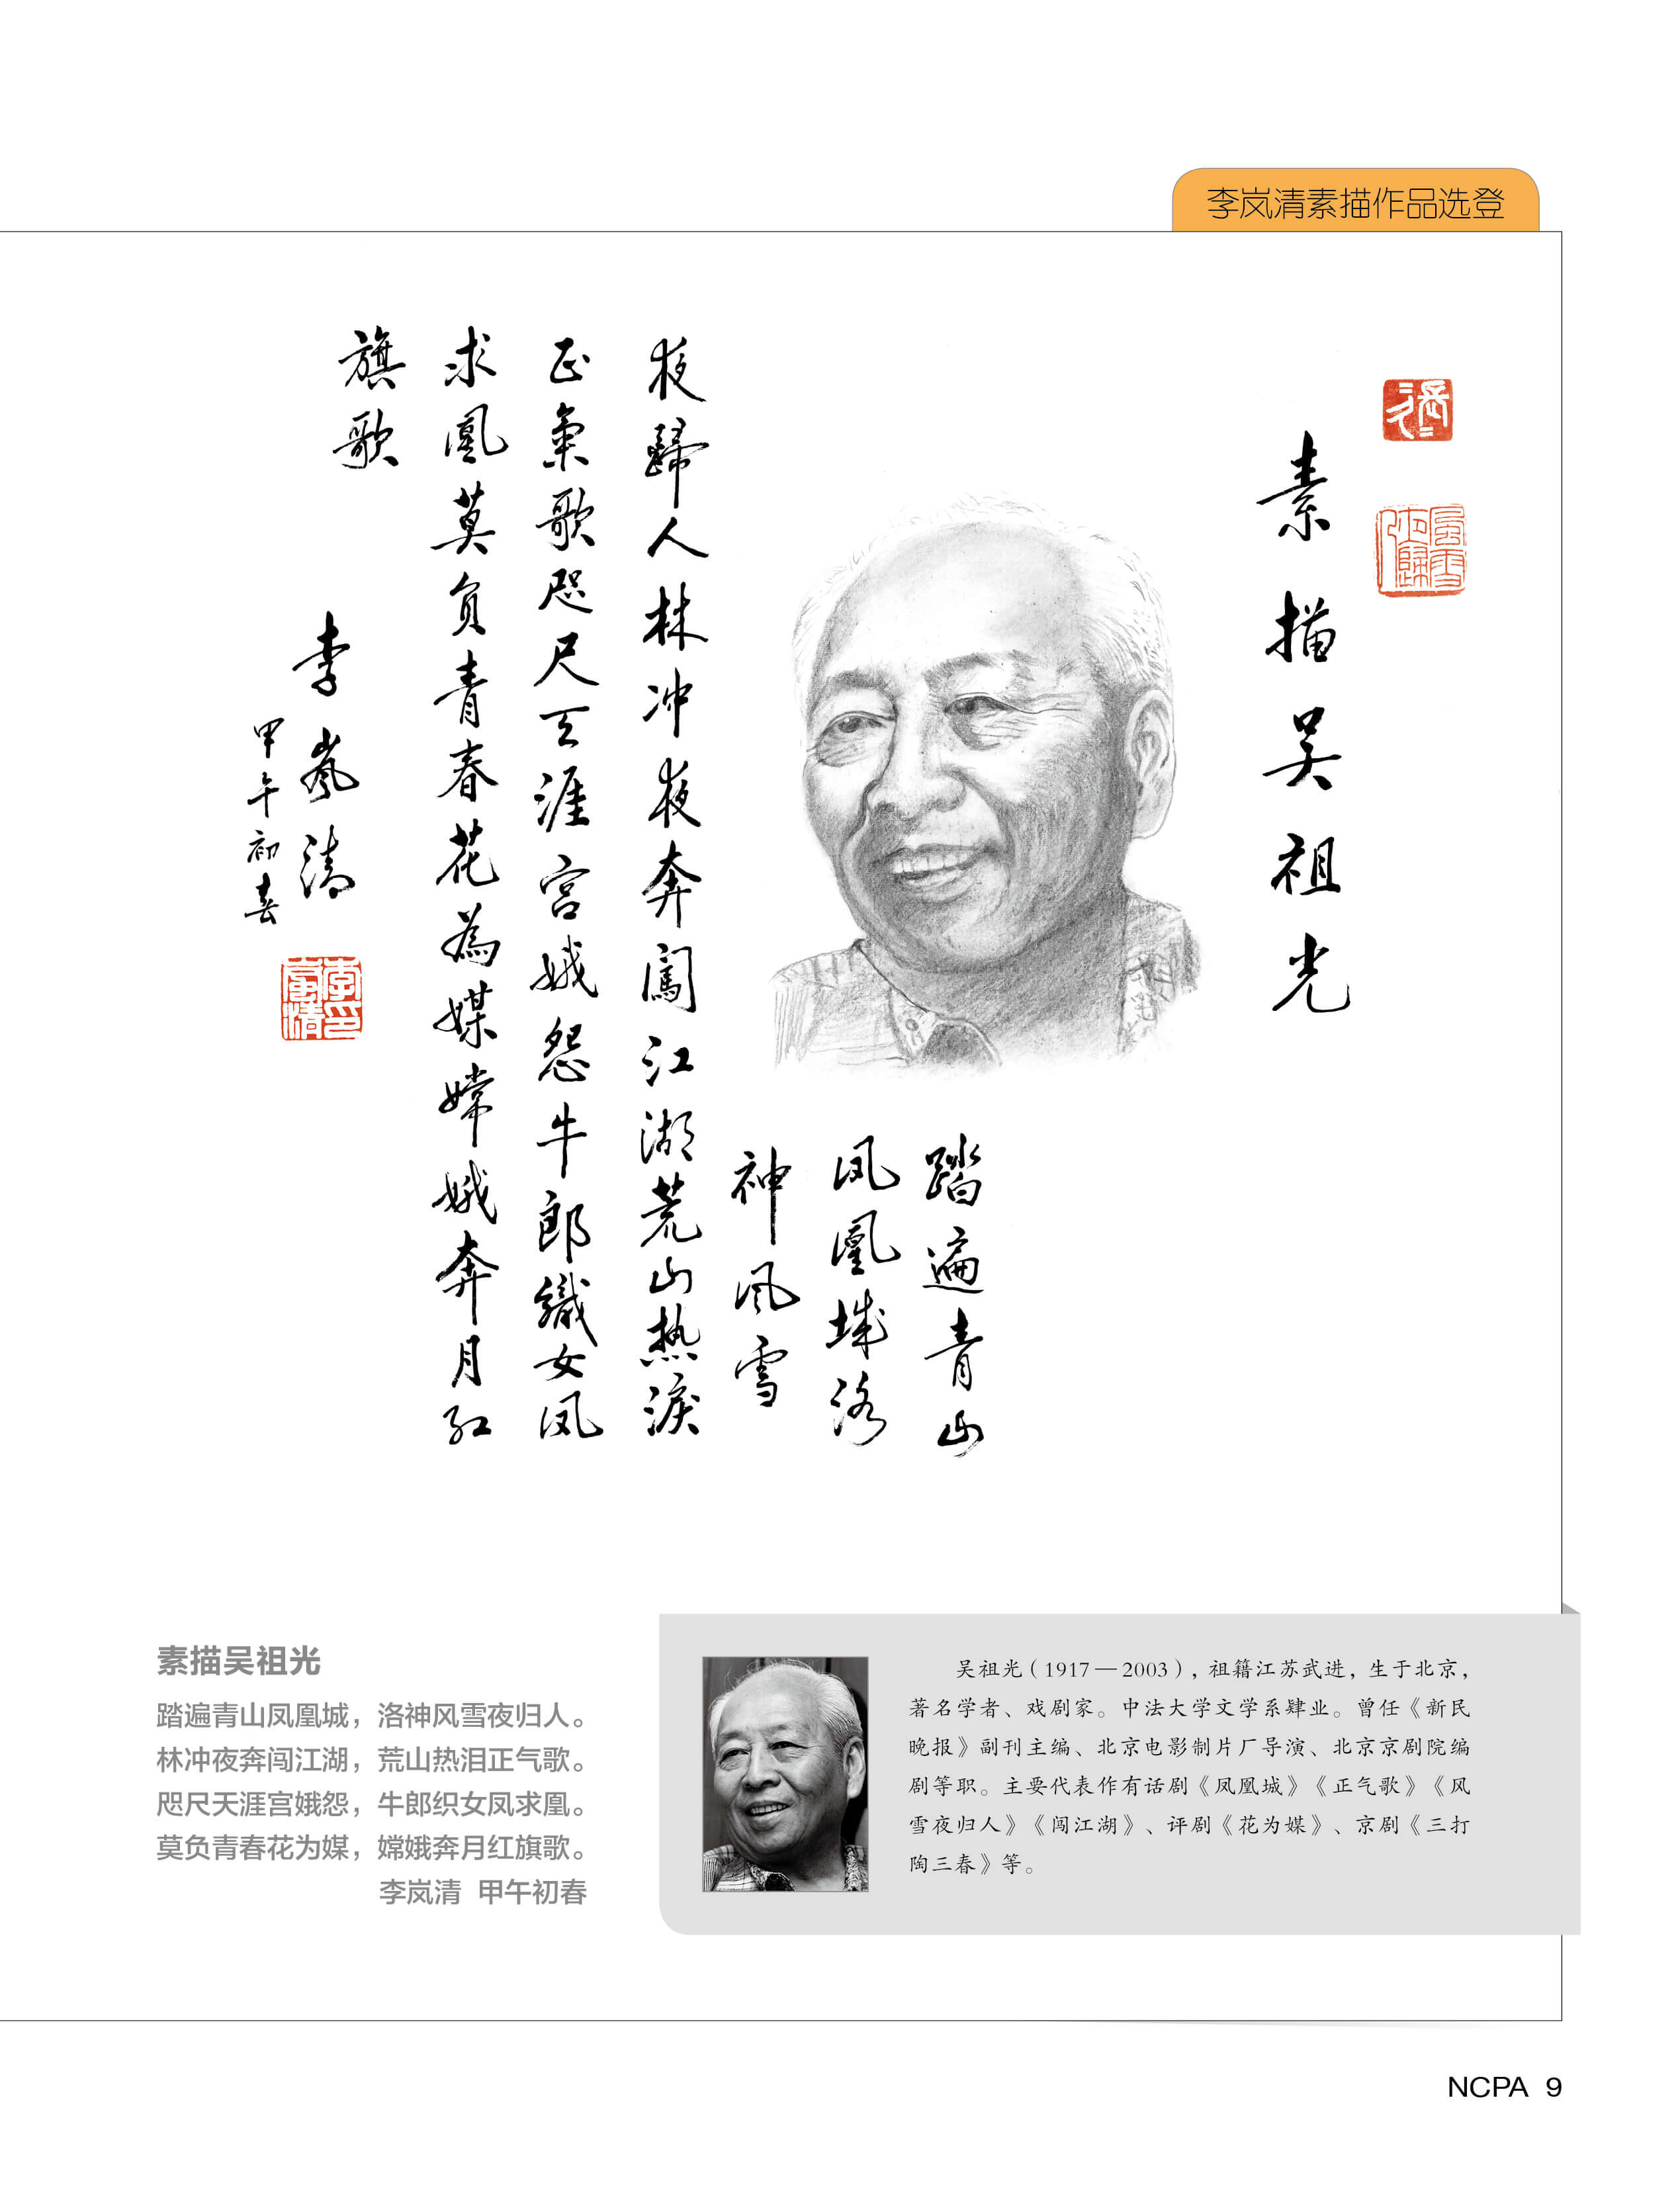 李岚清素描作品选登
素描吴祖光
踏遍青山
凤凰城洛
神风雪
夜歸人林冲夜奔闖江湖荒山热淚
正氣歌咫尺天涯宫娥怨牛郎織女凤
求凰莫負青春花為媒嫦娥奔月红
旗歌
李嵐清
甲午初春
素描吴祖光
踏遍青山凤凰城，洛神风雪夜归人。
林冲夜奔闯江湖，荒山热泪正气歌。
咫尺天涯宫娥怨，牛郎织女凤求凰。
莫负青春花为媒，嫦娥奔月红旗歌。
李岚清 甲午初春
吴祖光（1917—2003），祖籍江苏武进，生于北京，
著名学者、戏剧家。中法大学文学系肄业。曾任《新民
晚报》副刊主编、北京电影制片厂导演、北京京剧院编
剧等职。主要代表作有话剧《凤凰城》《正气歌》《风
雪夜归人》《闯江湖》、评剧《花为媒》、京剧《三打
陶三春》等。
NCPA 9